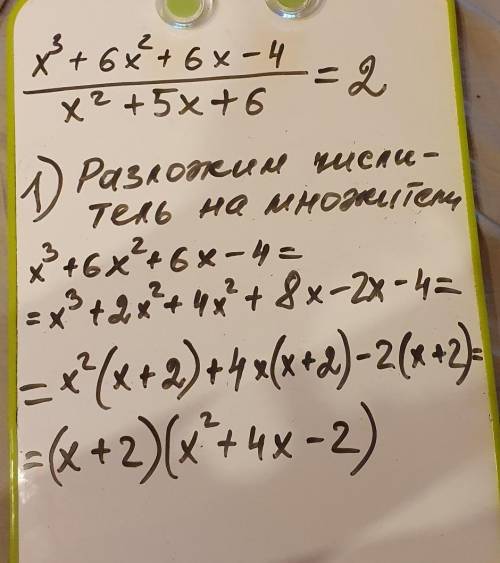 x³ + 6x² + 6x - 4
x² + 5x + 6
= 2
1) Разложим числи-
тель на множители
x³ + 6x² + 6x - 4 =
= x³ + 2x² + 4x² + 8x - 2x - 4 =
= x²(x + 2) + 4x(x + 2) - 2(x + 2) =
= (x + 2)(x² + 4x - 2)